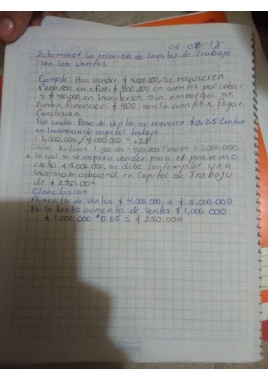 06-08-18
Determinar la relacion de Capital de Trabajo
con las Ventas
Ejemplo: Para Vender $ 4,000,000, Se requieren
$ 200,000 en efvo. $ 800,000 en cuentas por cobrar
y $ 400,000 en Inventarios, Sin embargo se
Pueden Financiar $ 400, con la cuentas x Pagar
Conclusion
Por cada Peso de Venta, se requieren $ 0.25 Centavos
en Inversion de capital trabajo
1,000,000 / 4,000,000 = .25
1,400,000 - 400,000 = 1,000,000
Lo cual si se espera Vender Para el proximo
ciclo $ 5,000,000 Se debe contemplar una
Inversion adicional en Capital de Trabajo
de $ 250,000
Conclusion
Aumento de Ventas $ 4,000,000 a $ 5,000,000
Por lo tanto aumento de Ventas $ 1,000,000
$ 1,000,000 * 0.25 = $ 250,000